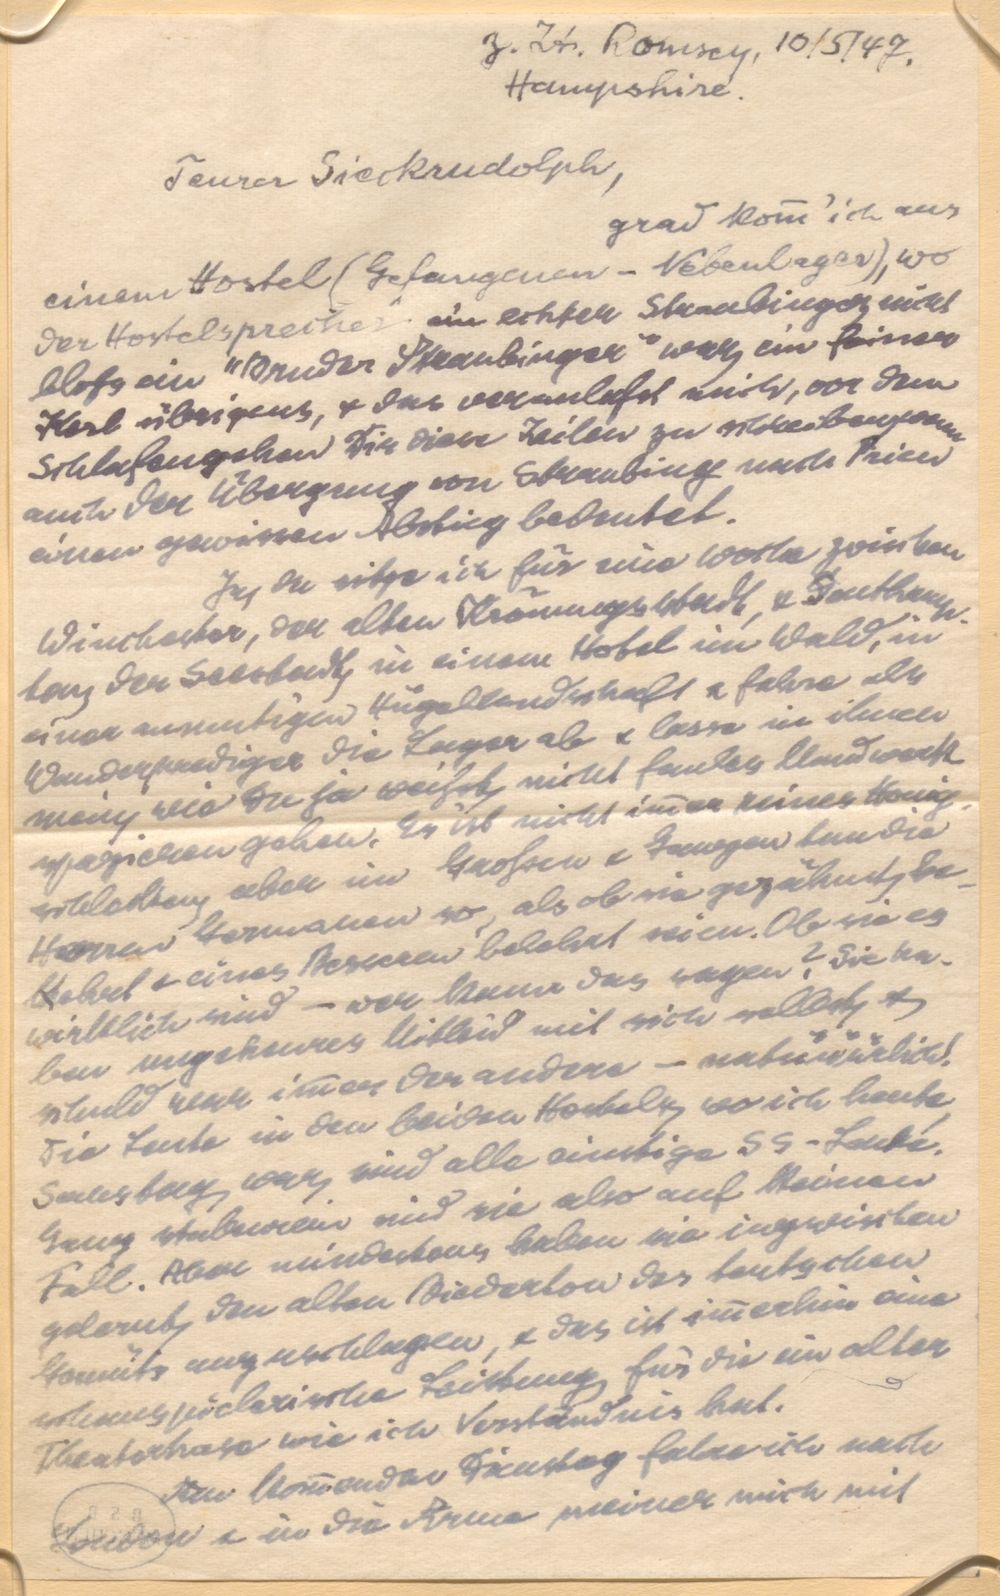 z. Zt. Romsey, 10/5/47.
Hampshire.
Teurer Sieckrudolph,
grad kom̄' ich aus
einem Hostel (Gefangenen-Nebenlager), wo
der Hostelsprecher ein echter Straubinger, nicht
bloß ein "Bruder Straubinger" war, ein feiner
Kerl übrigens, & das veranlaßt mich, vor dem
Schlafengehen Dir diese Zeilen zu schreiben, wenn
auch der Übergang von Straubing nach Prien
einen gewissen Abstieg bedeutet.
Ja, da sitze ich für eine Woche zwischen
Winchester, der alten Krönungsstadt, & Southamp-
ton, der Seestadt, in einem Hotel im Wald, in
einer anmutigen Hügellandschaft & fahre als
Wanderprediger die Lager ab & lasse in ihnen
mein, wie Du ja weißt, nicht faules Mundwerk
spazieren gehen. Es ist nicht im̄er reines Honig-
schlecken, aber im Großen & Ganzen tun die
Herren Germanen so, als ob sie gezähmt, be-
kehrt & eines Besseren belehrt seien. Ob sie es
wirklich sind – wer kann das sagen? Sie ha-
ben ungeheures Mitleid mit sich selbst, &
schuld war im̄er der andere – natüüüürlich!
Die Leute in den beiden Hostels, wo ich heute,
Samstag, war, sind alle einstige SS-Leute.
Ganz stubenrein sind sie also auf keinen
Fall. Aber mindestens haben sie inzwischen
gelernt, den alten Biederton des teutschen
Gemüts anzuschlagen, & das ist im̄erhin eine
schauspielerische Leistung, für die ein alter
Theaterhase wie ich Verständnis hat.
Am kom̄enden Dienstag fahre ich nach
London & in die Arme meiner mich mit